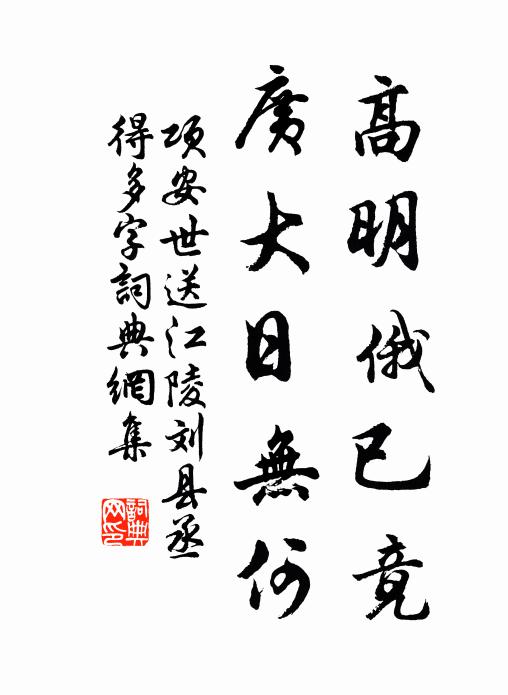 高明俄已竟
廣大日無何
项安世送江陵刘县丞
得多字詞典網集
詞典网印